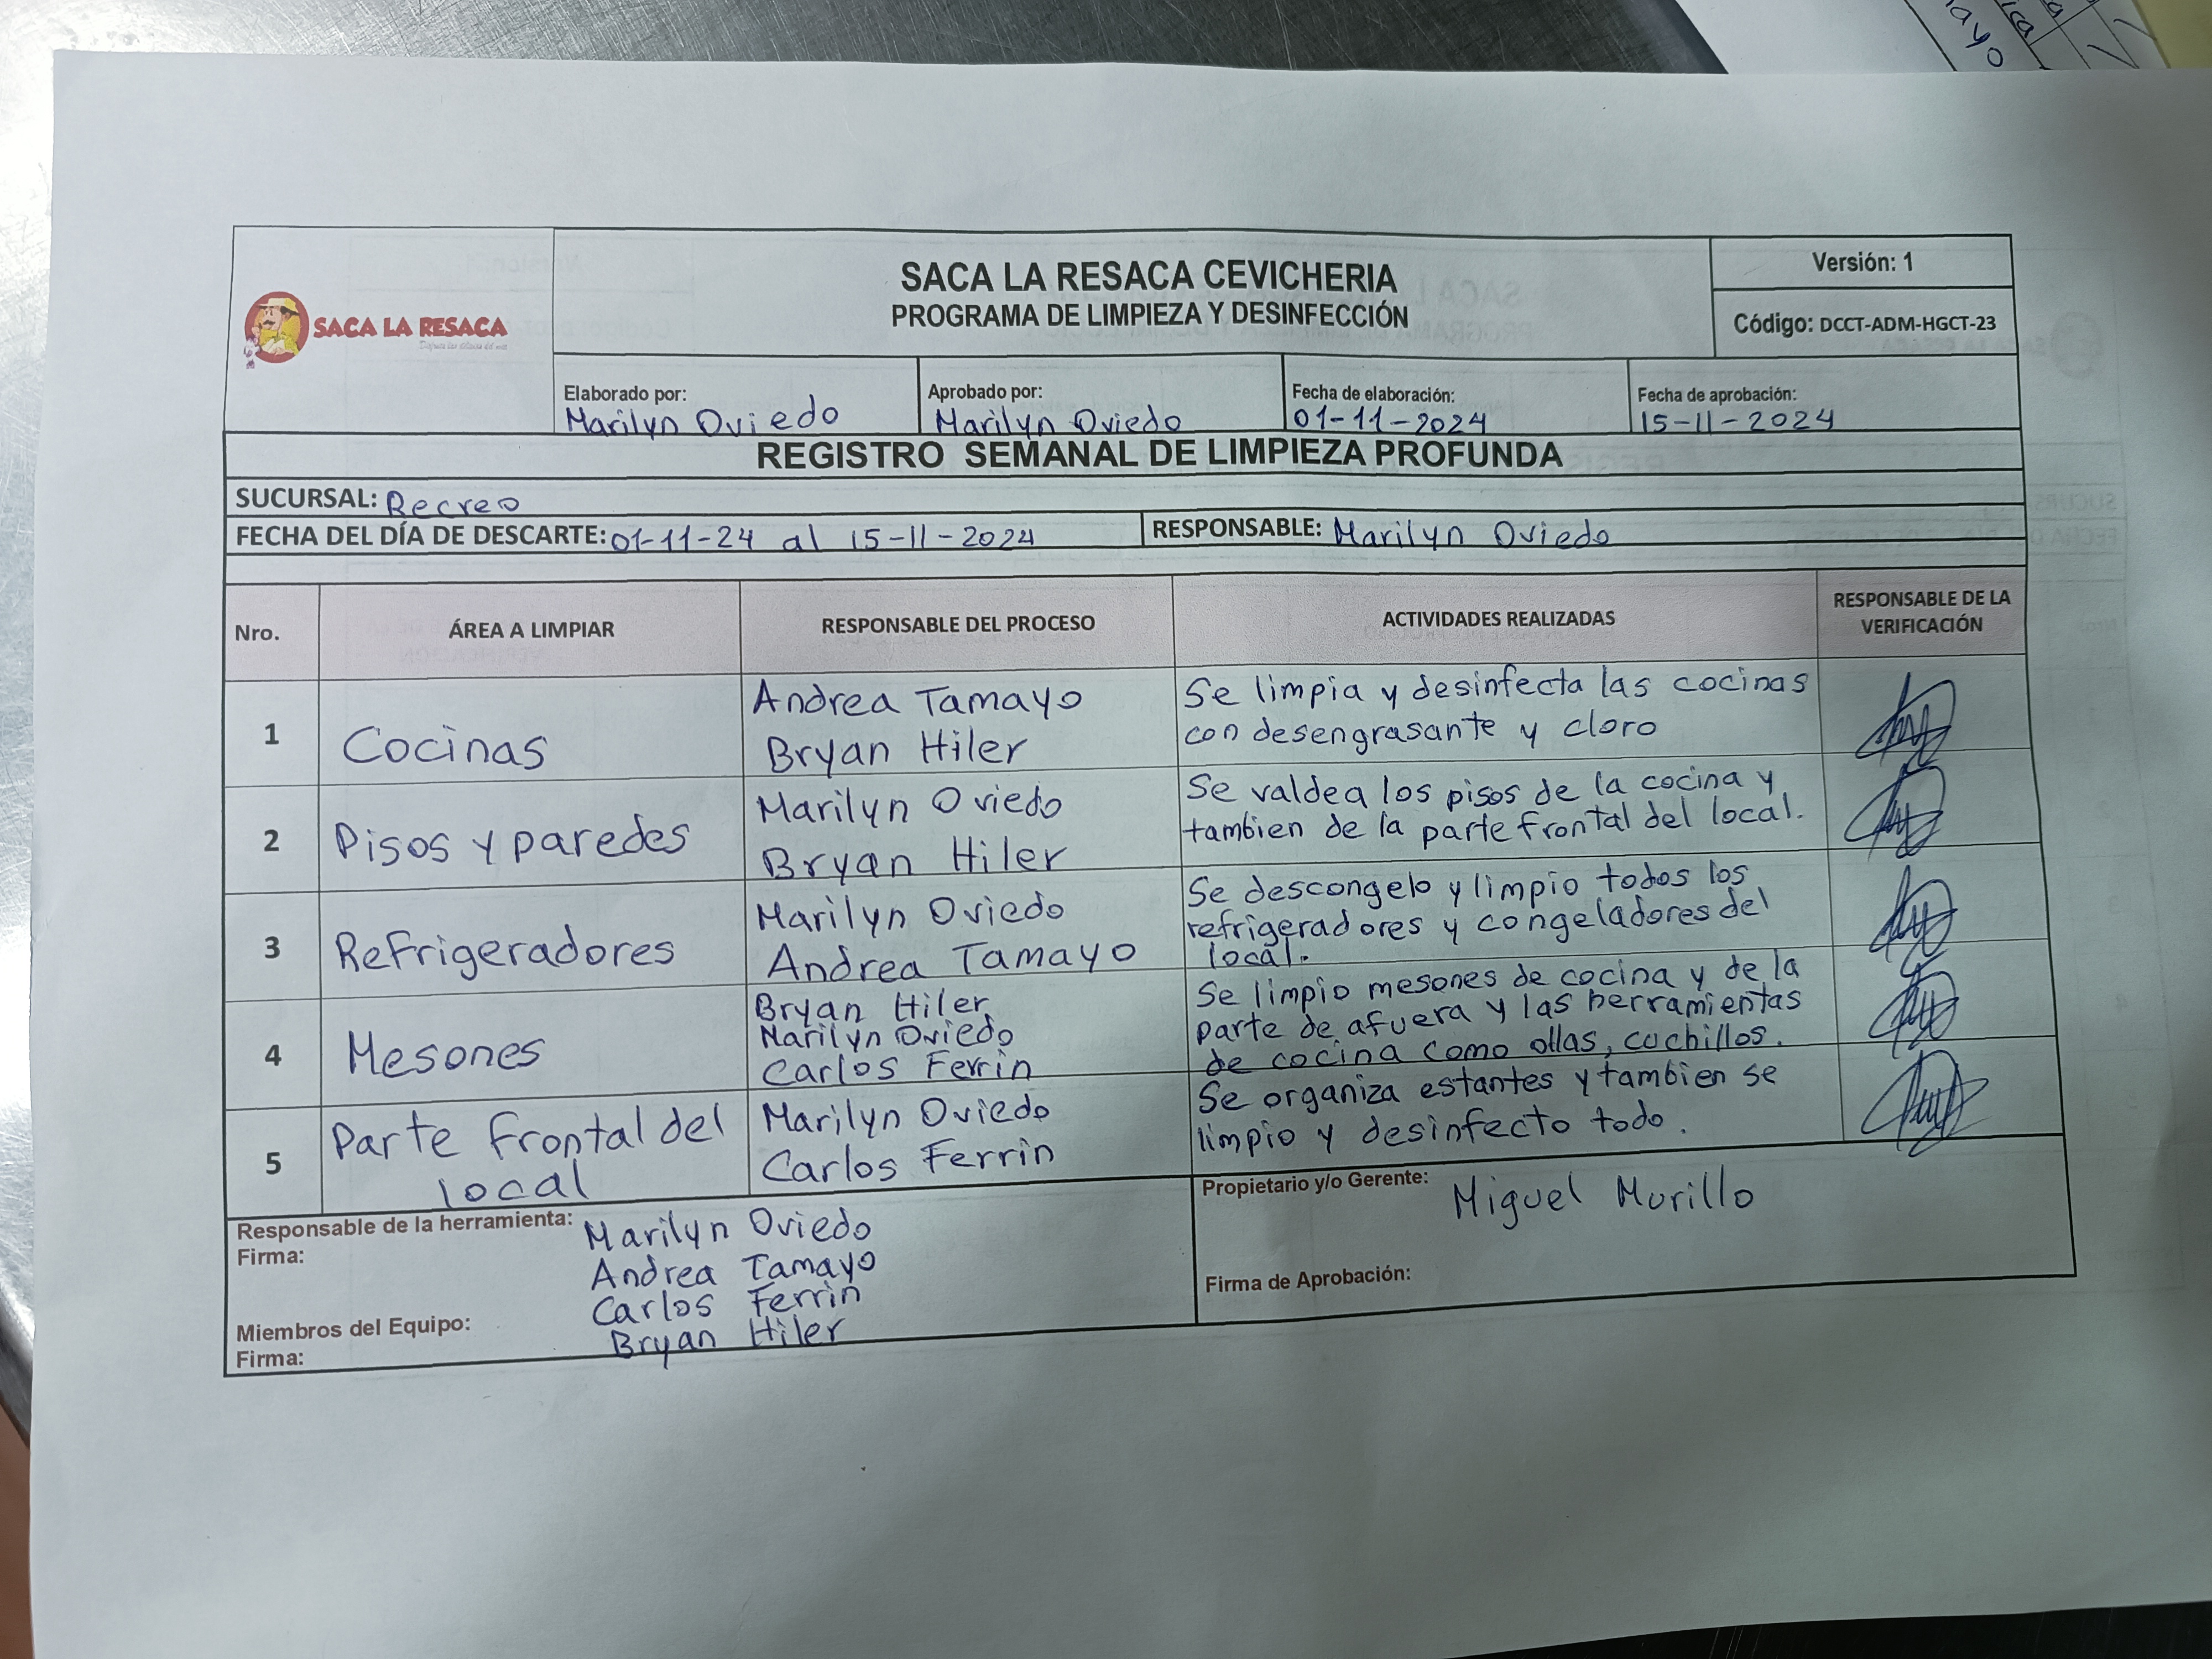 SACA LA RESACA
SACA LA RESACA CEVICHERIA
PROGRAMA DE LIMPIEZA Y DESINFECCIÓN
Versión: 1
Código: DCCT-ADM-HGCT-23
Elaborado por:
Marilyn Oviedo
Aprobado por:
Marilyn Oviedo
Fecha de elaboración:
01-11-2024
Fecha de aprobación:
15-11-2024
REGISTRO SEMANAL DE LIMPIEZA PROFUNDA
SUCURSAL: Recreo
FECHA DEL DÍA DE DESCARTE: 01-11-24 al 15-11-2024
RESPONSABLE: Marilyn Oviedo
Nro.
ÁREA A LIMPIAR
RESPONSABLE DEL PROCESO
ACTIVIDADES REALIZADAS
RESPONSABLE DE LA
VERIFICACIÓN
1
Cocinas
Andrea Tamayo
Bryan Hiler
Se limpia y desinfecta las cocinas
con desengrasante y cloro
2
Pisos y paredes
Marilyn Oviedo
Bryan Hiler
Se valdea los pisos de la cocina y
tambien de la parte frontal del local.
3
Refrigeradores
Marilyn Oviedo
Andrea Tamayo
Se descongelo y limpio todos los
refrigeradores y congeladores del
local.
4
Mesones
Bryan Hiler
Marilyn Oviedo
Carlos Ferrin
Se limpio mesones de cocina y de la
parte de afuera y las herramientas
de cocina como ollas, cuchillos.
5
Parte frontal del
local
Marilyn Oviedo
Carlos Ferrin
Se organiza estantes y tambien se
limpio y desinfecto todo.
Responsable de la herramienta: Marilyn Oviedo
Firma:
Andrea Tamayo
Carlos Ferrin
Miembros del Equipo:
Bryan Hiler
Firma:
Propietario y/o Gerente: Miguel Murillo
Firma de Aprobación: